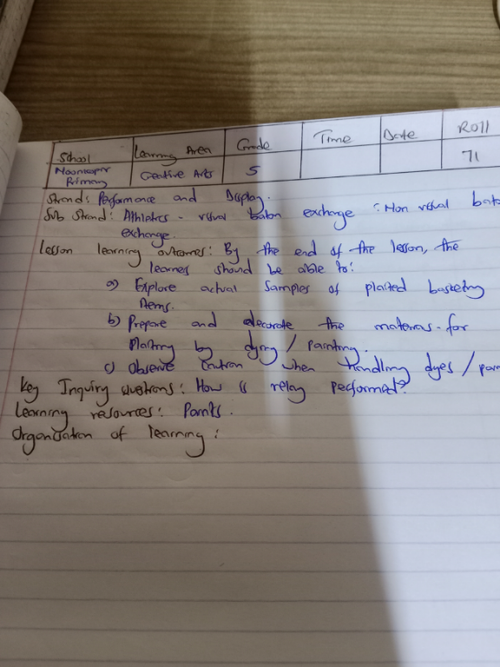 School Learning Area Grade Time Date Roll
Primary Creative Arts 5 71
Strand: Performance and Display.
Sub Strand: Athletics - visual baton exchange : Non visual bato
exchange.
Lesson learning outcomes: By the end of the lesson, the
learner should be able to:
a) Explore actual samples of plaited basketry
items.
b) Prepare and decorate the materials for
Plaiting by dying / painting.
c) Observe caution when handling dyes / pain
Key Inquiry questions: How is relay performed?
Learning resources: Paints.
Organisation of learning: